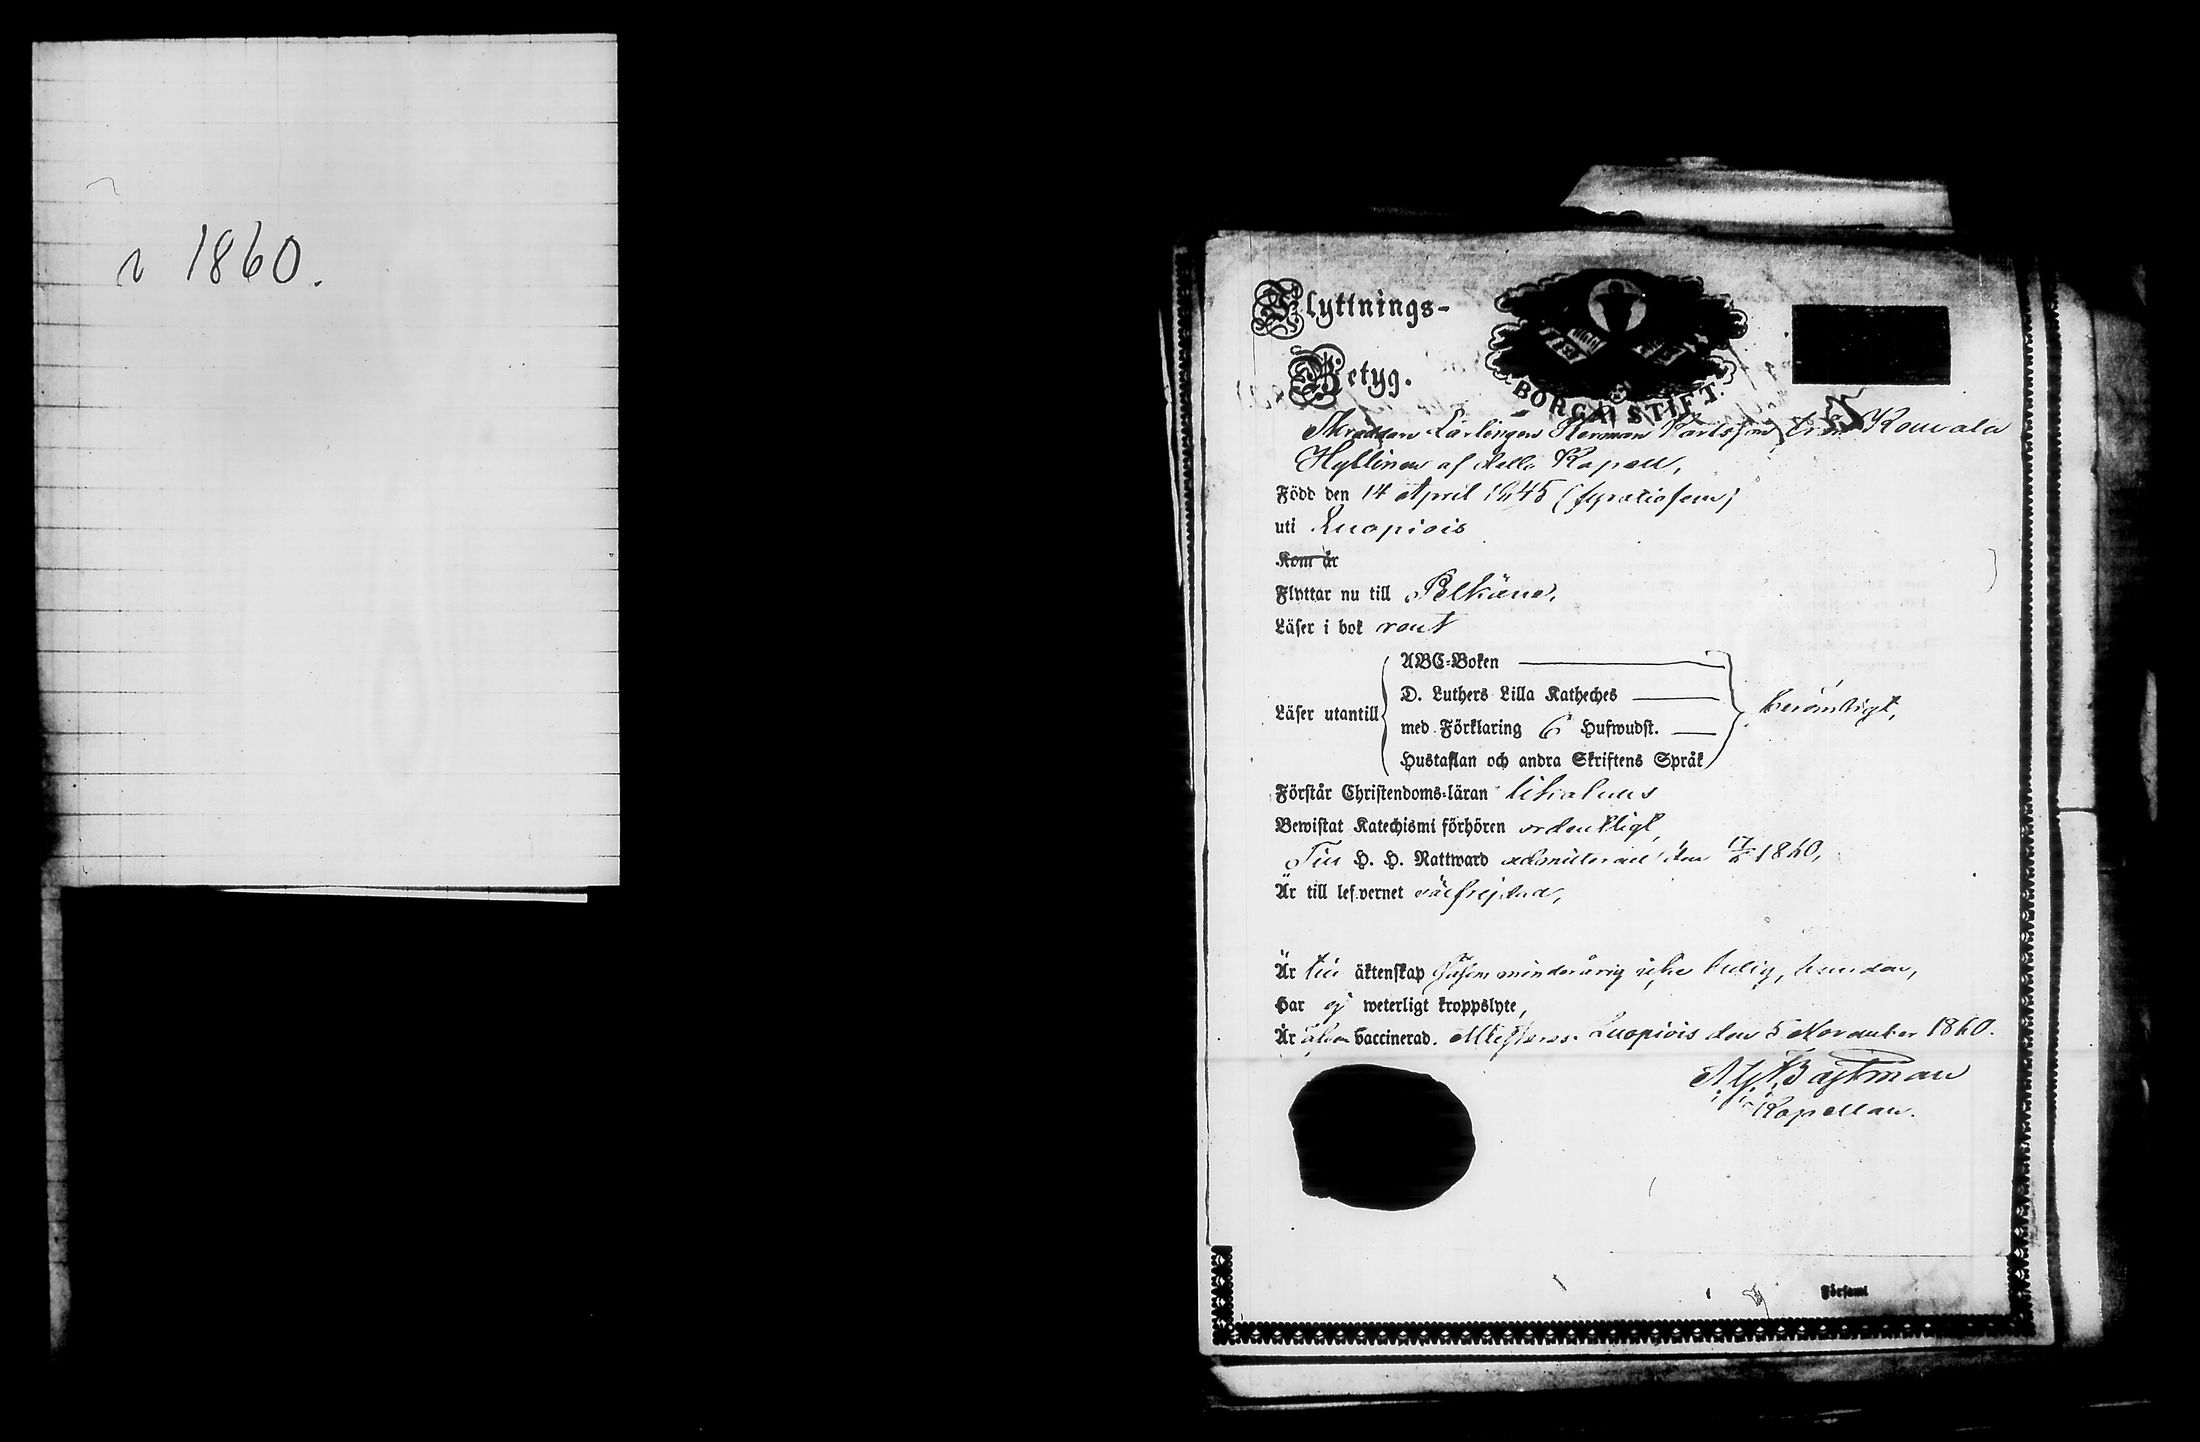 1860.
Flyttnings-
Betyg.
BORGÅ STIFT.
Skräddare Lärlingen Herman Karlsson från Kouvala
Hyllinen af Kapell,
Född den 14 April 1845 (fyratiofem)
uti Luopiois
Kom år
Flyttar nu till Pelkäne,
Läser i bok rent
Läser utantill
ABC-Boken
D. Luthers Lilla Katheches
med Förklaring 6 Hufwudst.
Hustaflan och andra Skriftens Språk
berömligt,
Förstår Christendoms-läran likaledes
Bewistat Katechismi förhören ordentligt,
Till H. H. Nattward admitterad den 1860,
Är till lefvernet välfrejdad,
Är till äktenskap såsom minderårig icke ledig,
Har ej weterligt kroppslyte,
Är äfven vaccinerad. Attesteras. Luopiois den 5 November 1860.
Bastman
Kapellan.
Församl